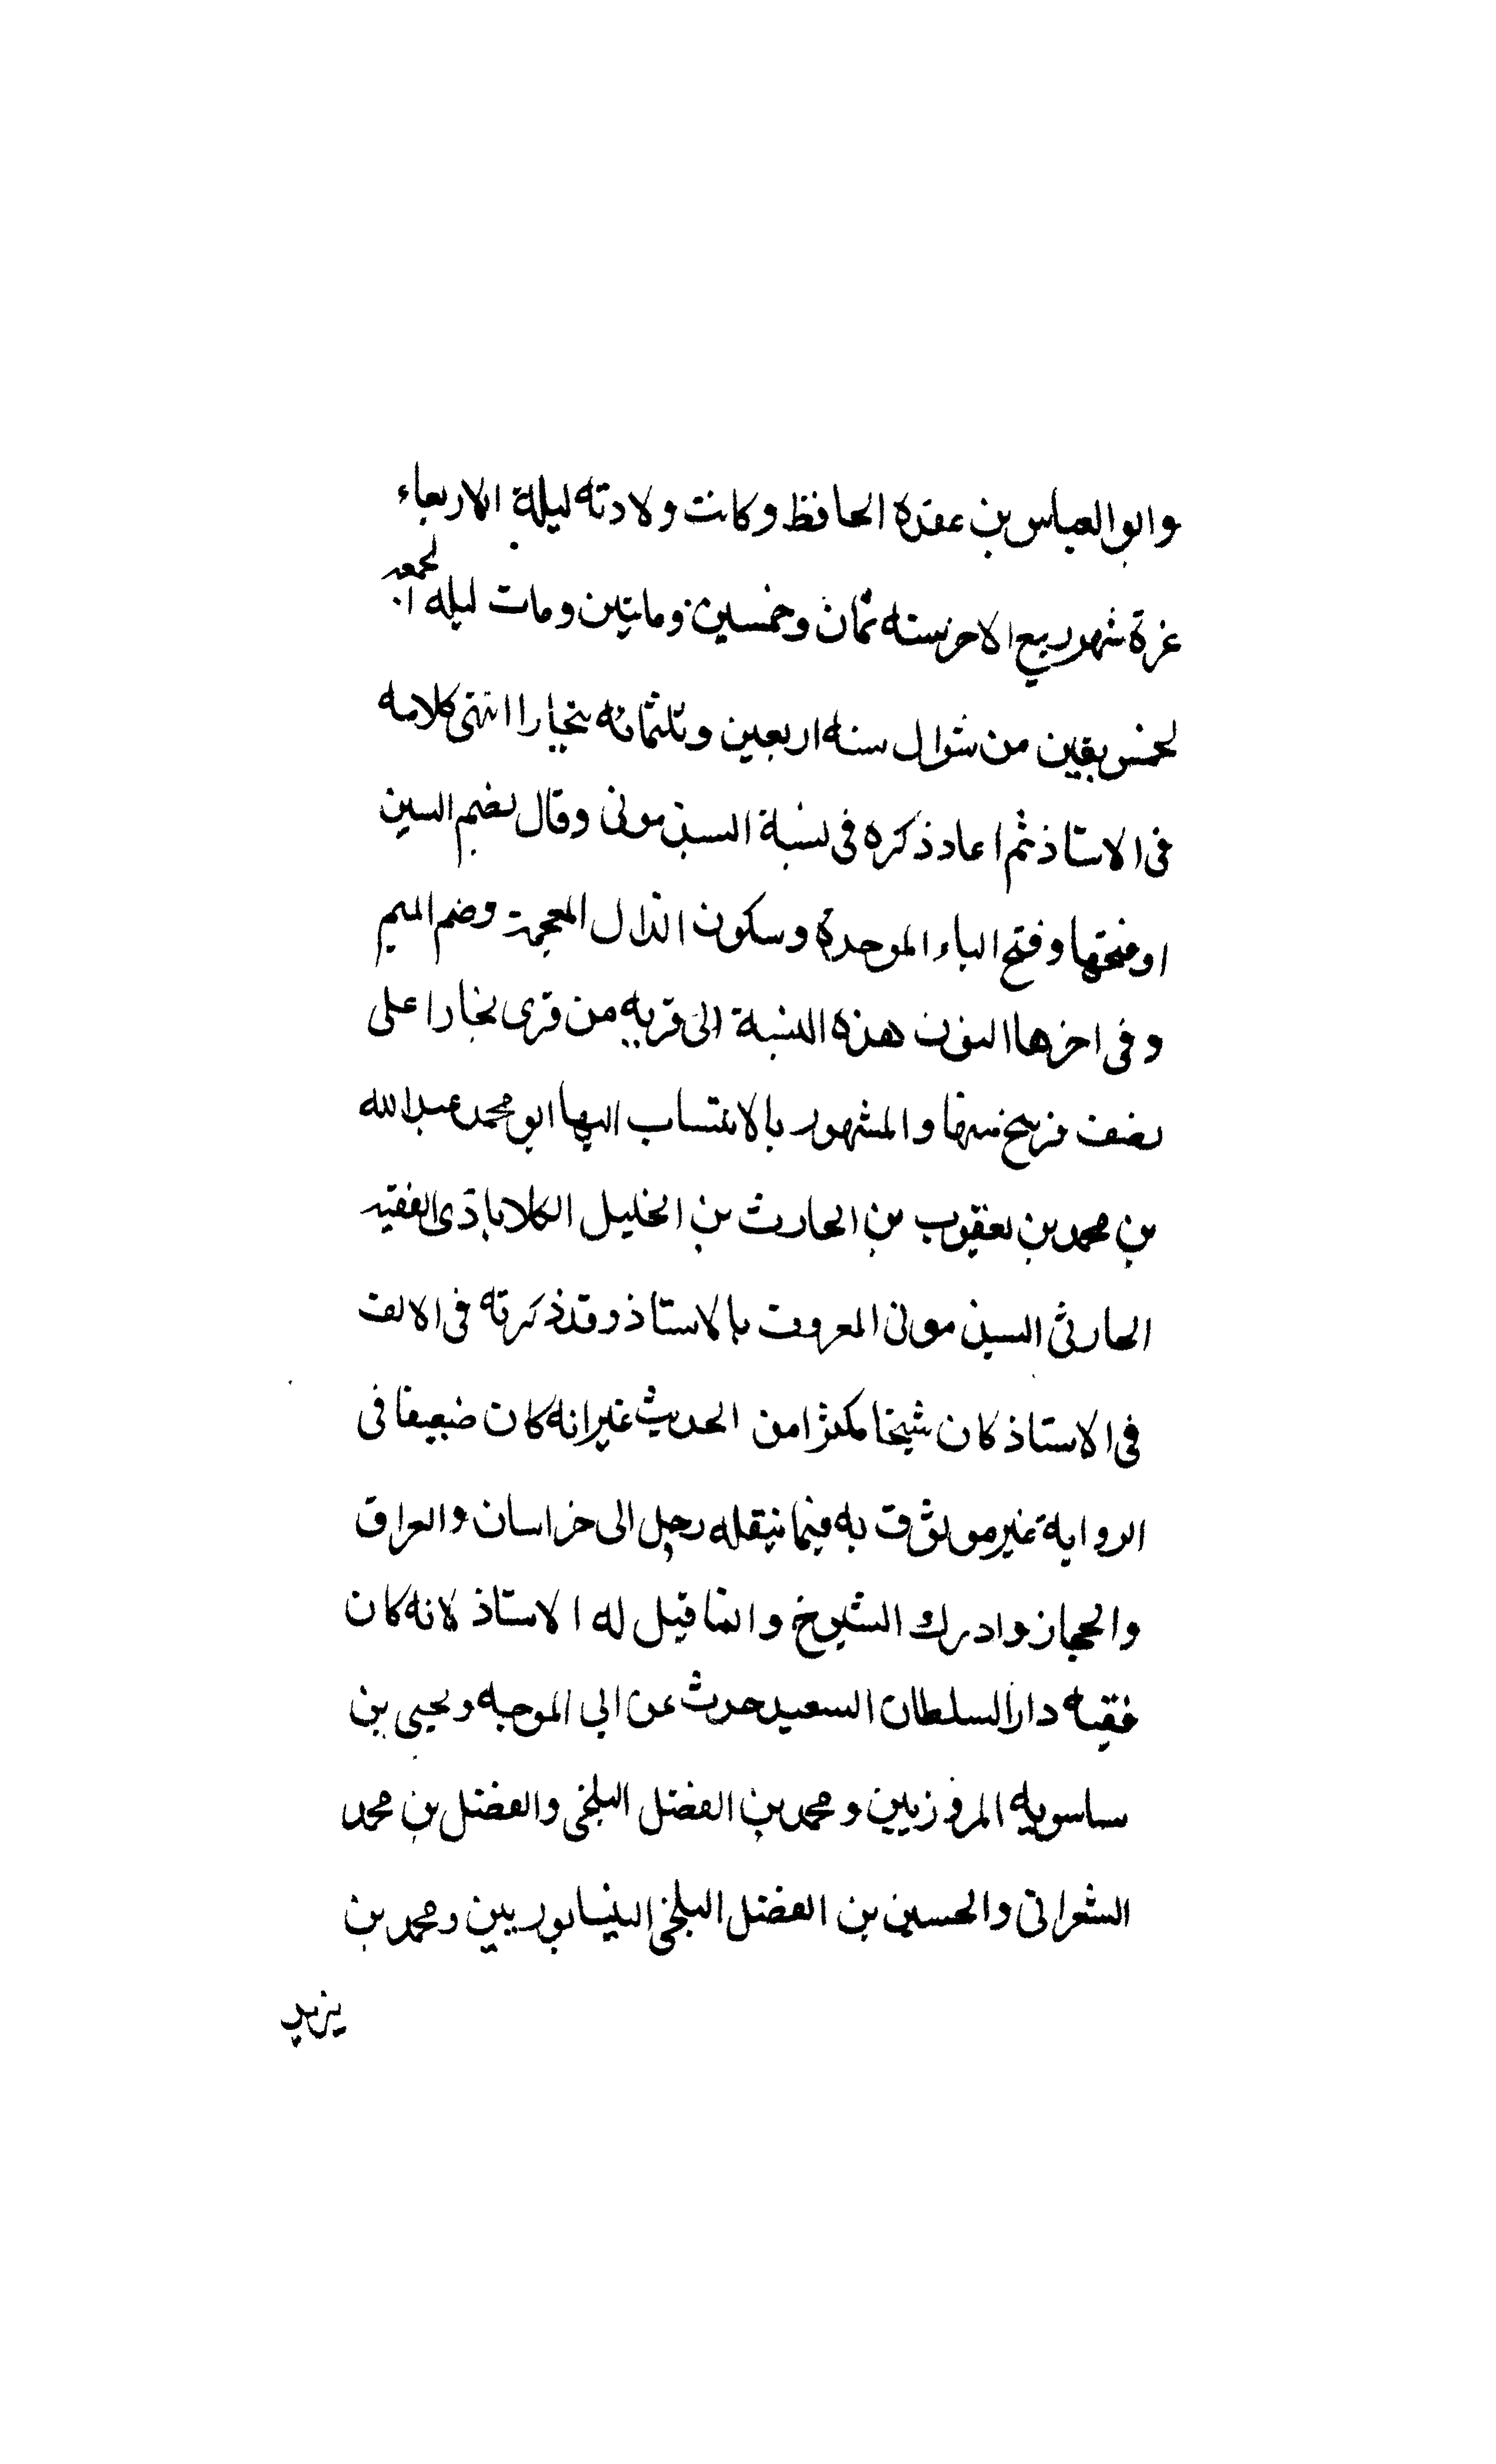 وابو العباس بن عقدة الحافظ وكانت ولادته ليلة الاربعاء
غرة شهر ربيع الاخر سنه ثمان وخمسين ومايتين ومات ليله الجمعه
لخمس بقين من شوال سنه اربعين وثلثمائه ببخارا انتهى كلامه
فى الاستاذ ثم اعاد ذكره فى نسبة السبذمونى وقال بضم السين
او فتحها وفتح الباء الموحدة وسكون الذال المعجمة وضم الميم
وفى اخرها النون هذه النسبة الى قريه من قرى بخارا على
نصف فرسخ منها والمشهور بالانتساب اليها ابو محمد عبد الله
بن محمد بن يعقوب بن الحارث بن الخليل الكلاباذى الفقيه
الحارثى السبذمونى المعروف بالاستاذ وقد ذكرته فى الالف
فى الاستاذ كان شيخا مكثرا من الحديث غير انه كان ضعيفا فى
الرواية غير موثوق به فيما ينقله رحل الى خراسان والعراق
والحجاز وادرك الشيوخ وانما قيل له الاستاذ لانه كان
فقيه دار السلطان السعيد حدث عن ابى الموجه ويحيى بن
ساسويه المروزيين ومحمد بن الفضل البلخى والفضل بن محمد
الشعرانى والحسين بن الفضل البلخى النيسابوريين ومحمد بن
يزيد